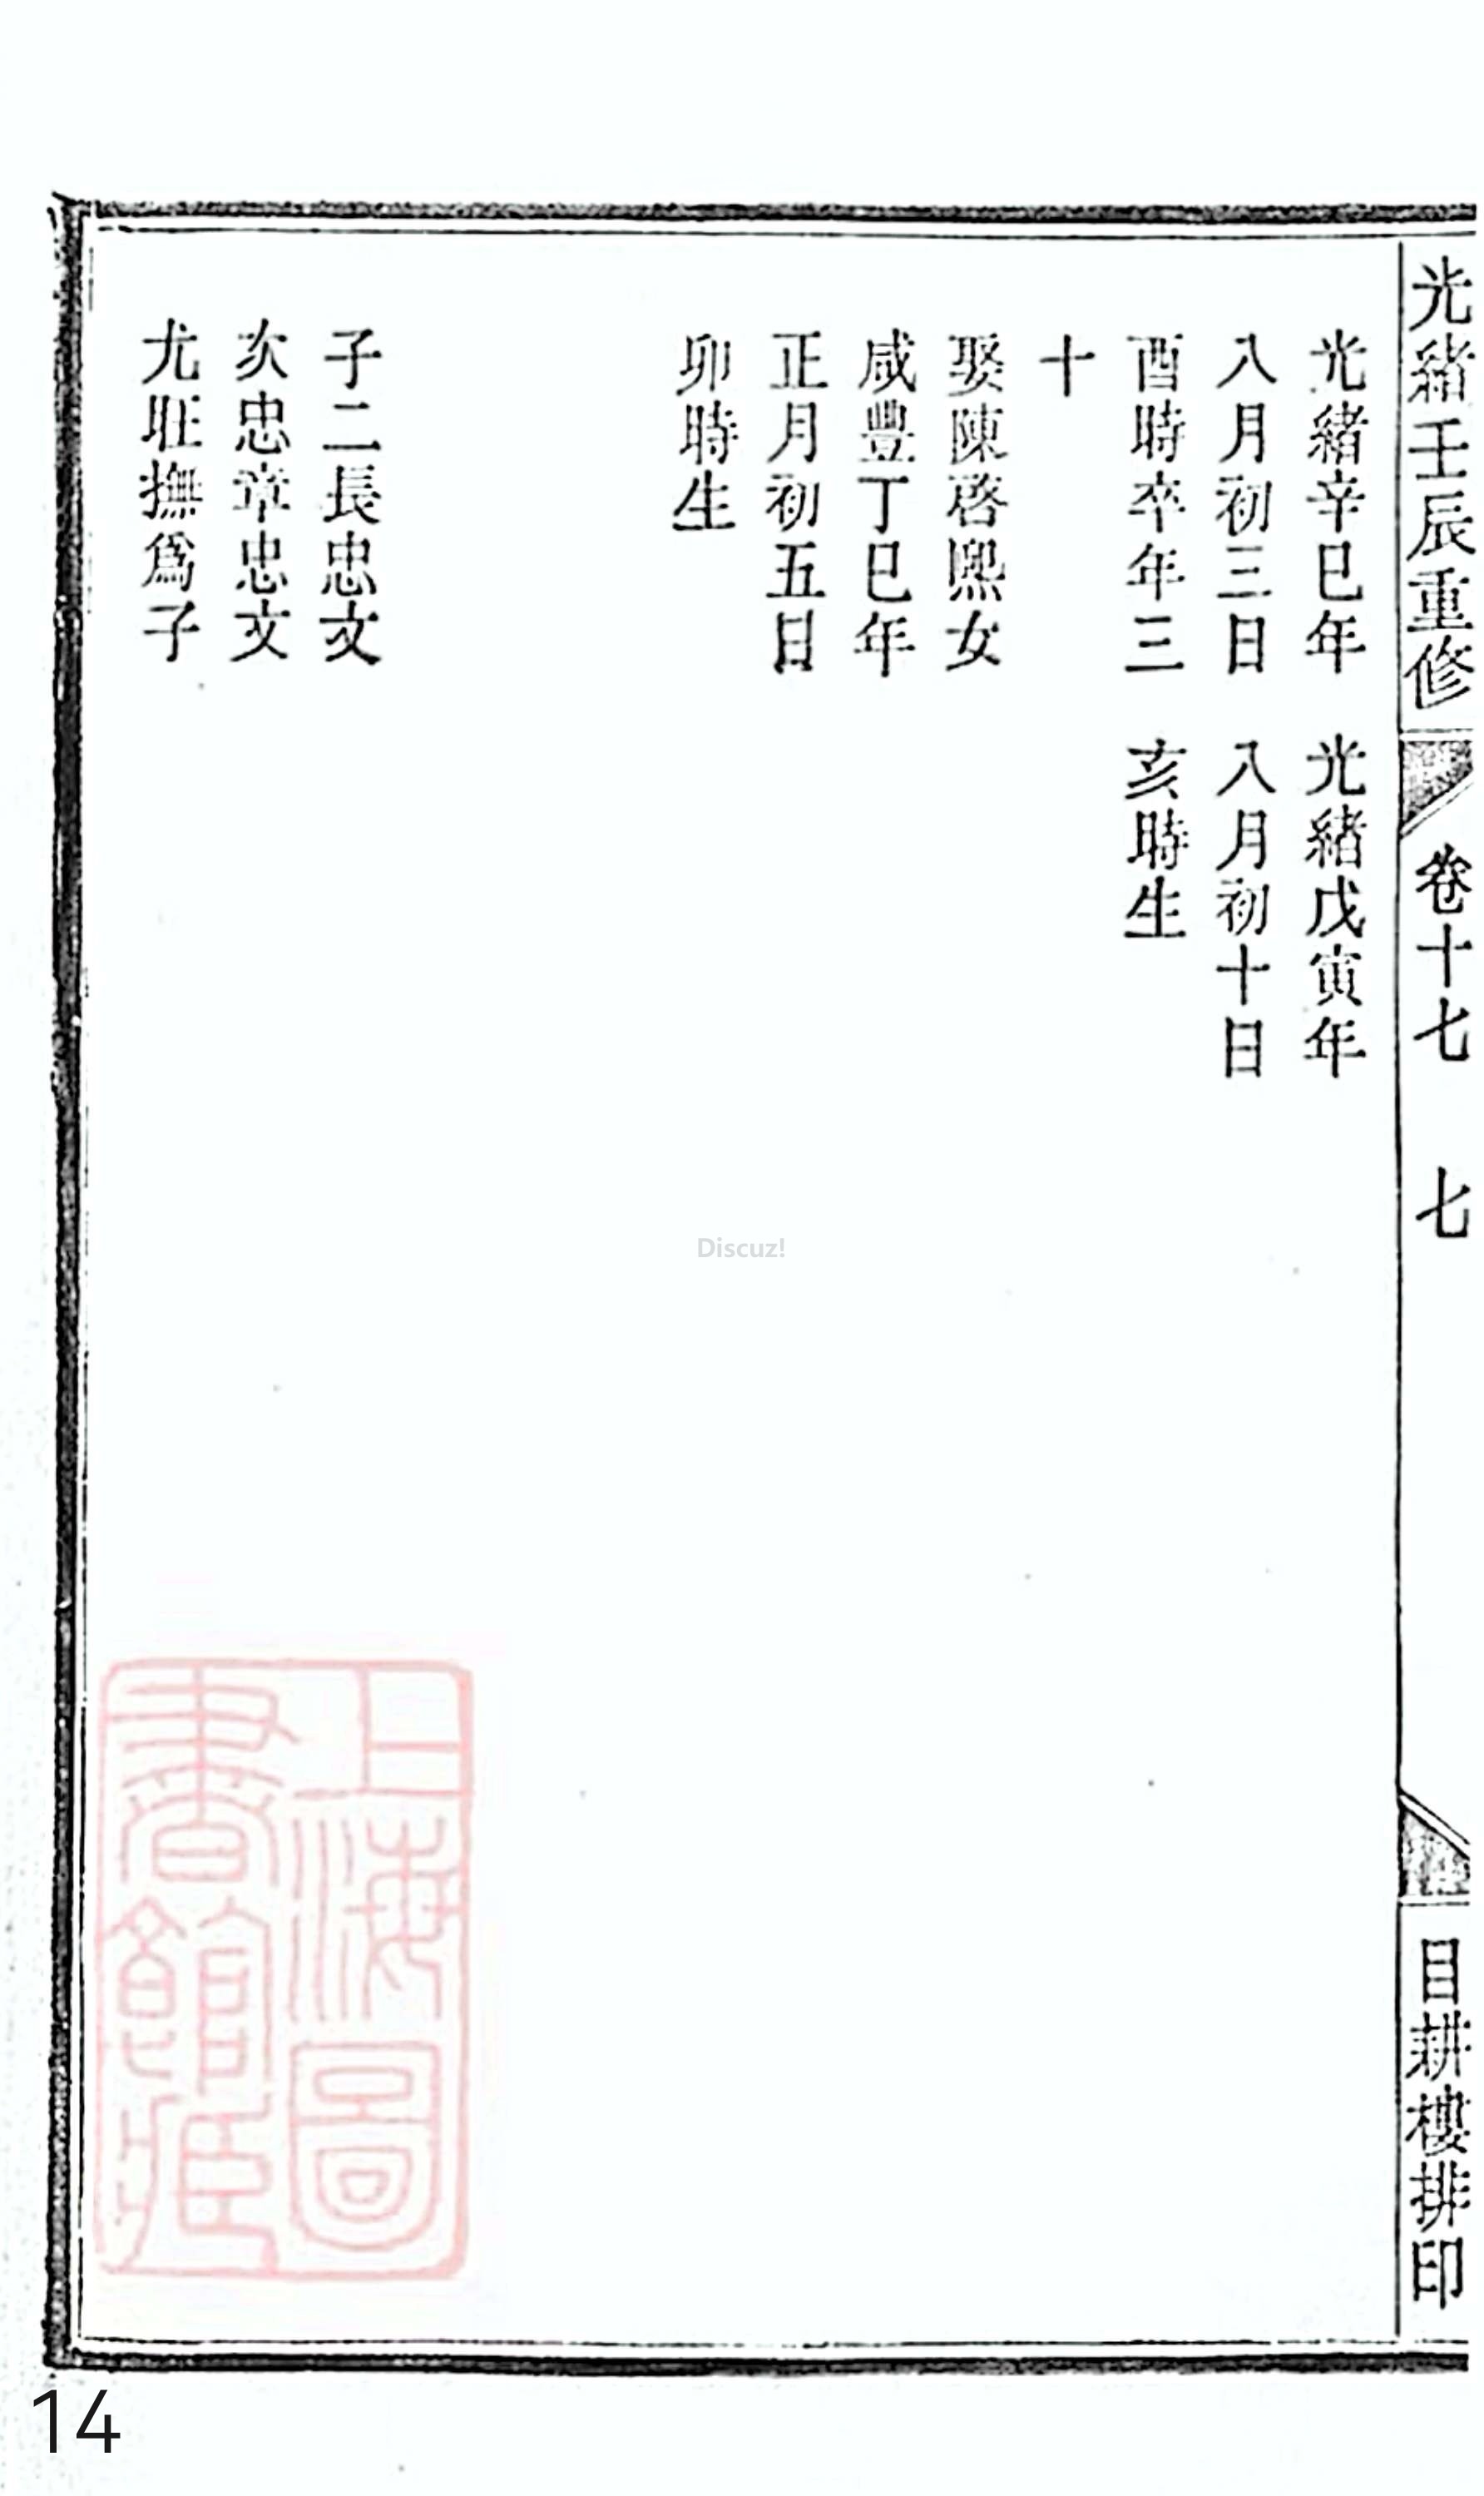 光緒壬辰重修
卷十七
七
目耕樓排印
光緒辛巳年
八月初三日
酉時卒年三
十
娶陳啓熙女
咸豐丁巳年
正月初五日
卯時生
子二長忠文
次忠章忠文
尤旺撫爲子
光緒戊寅年
八月初十日
亥時生
上海圖
書館藏
Discuz!
14